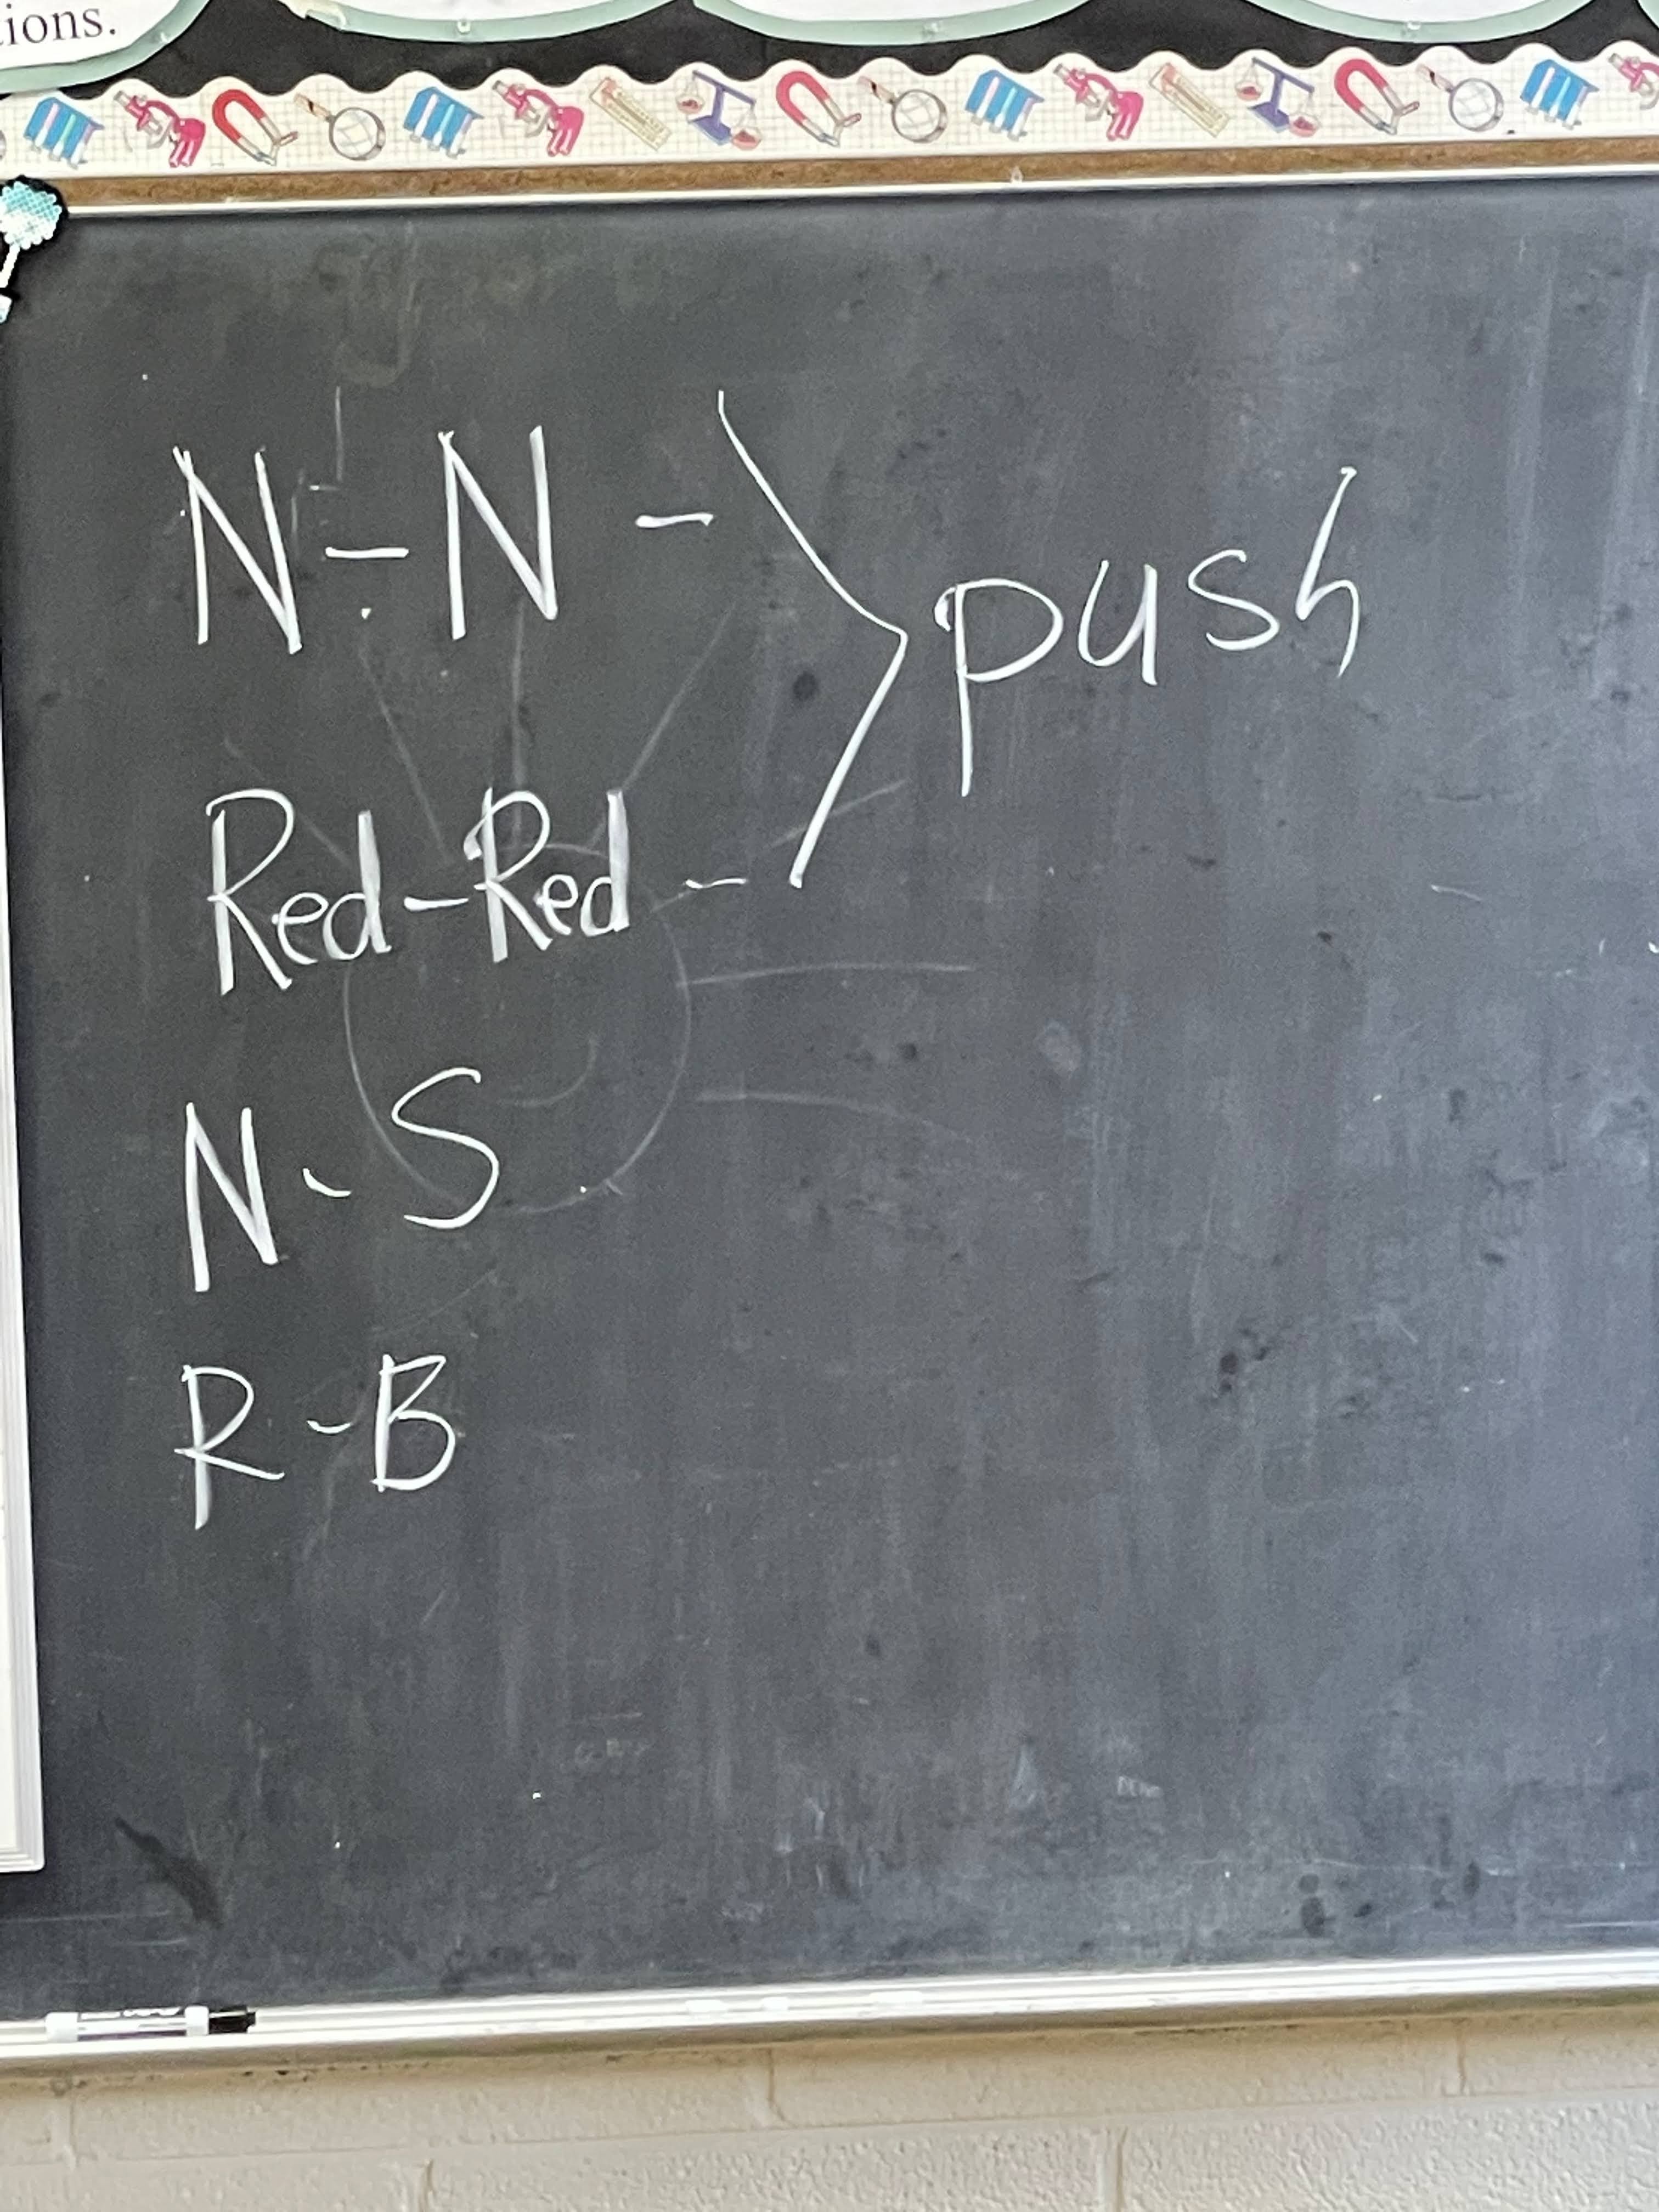 ions.
N-N - > push
Red-Red -
N-S
R-B